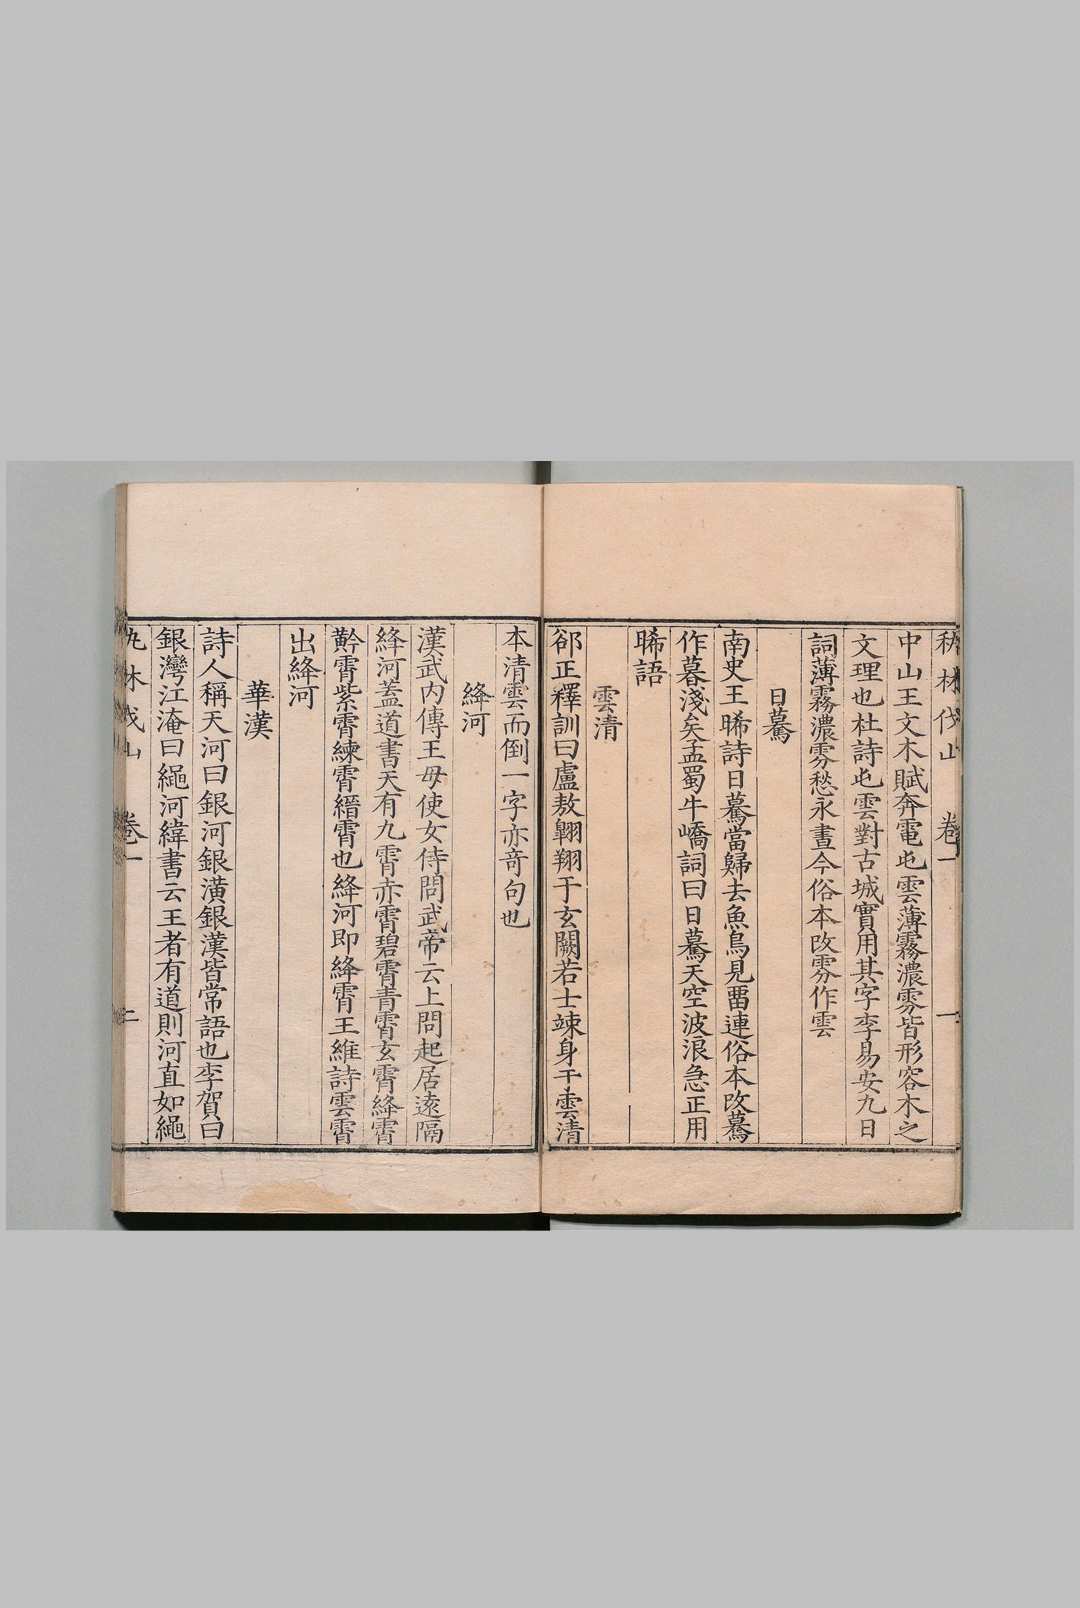 秇林伐山 卷一 一
中山王文木賦奔電屯雲薄霧濃雰皆形容木之
文理也杜詩屯雲對古城實用其字李易安九日
詞薄霧濃雰愁永晝今俗本改雰作雲
日驀
南史王晞詩日驀當歸去魚鳥見畱連俗本改驀
作暮淺矣孟蜀牛嶠詞曰日驀天空波浪急正用
晞語
雲清
郤正釋訓曰盧敖翺翔于玄闕若士竦身于雲清
本清雲而倒一字亦竒句也
絳河
漢武内傳王母使女侍問武帝云上問起居遠隔
絳河蓋道書天有九霄赤霄碧霄青霄玄霄絳霄
黅霄紫霄練霄縉霄也絳河即絳霄王維詩雲霄
出絳河
華漢
詩人稱天河曰銀河銀潢銀漢皆常語也李賀曰
銀灣江淹曰繩河緯書云王者有道則河直如繩
林伐山 卷一 二